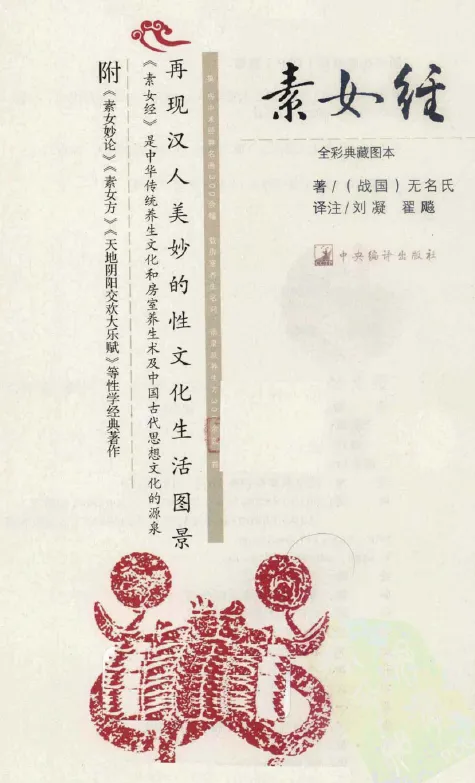 素女经
全彩典藏图本
著/（战国）无名氏
译注/刘凝 翟飚
中央编译出版社
再现汉人美妙的性文化生活图景
《素女经》是中华传统养生文化和房室养生术及中国古代思想文化的源泉
附《素女妙论》《素女方》《天地阴阳交欢大乐赋》等性学经典著作